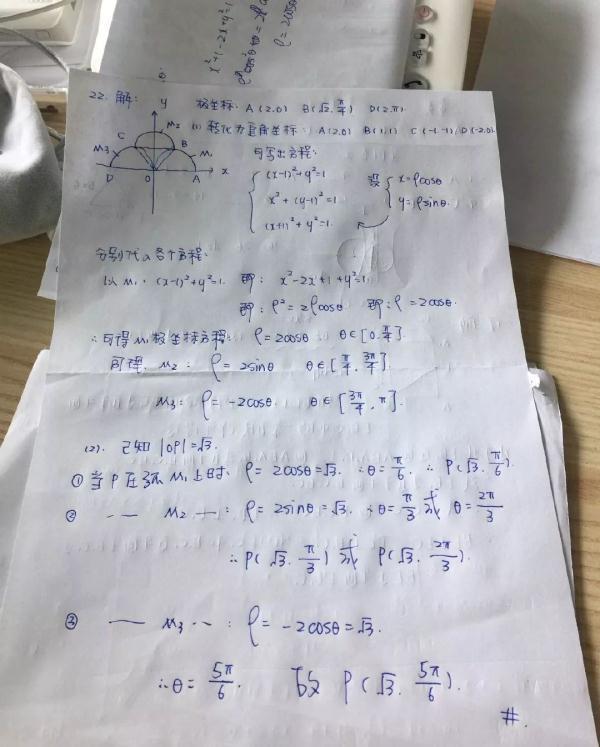 x²+1-2x+y²=1
ρ=2cosθ
22. 解: 极坐标: A(2.0) B(√2.π/4) D(2.π)
(1) 转化为直角坐标: A(2.0) B(1,1) C(-1.1) D(-2.0)
y
M2
C
B
M3
M1
D
O
A
x
可写出方程:
(x-1)²+y²=1
x²+(y-1)²=1
(x+1)²+y²=1.
x=ρcosθ
y=ρsinθ.
分别代入各个方程:
以 M1: (x-1)²+y²=1. 即: x²-2x+1+y²=1
即: ρ²=2ρcosθ 即: ρ=2cosθ.
∴可得 M1 极坐标方程: ρ=2cosθ θ∈[0.π/4].
同理. M2: ρ=2sinθ θ∈[π/4.3π/4].
M3: ρ=-2cosθ. θ∈[3π/4.π].
(2). 已知|OP|=√3.
① 当P在弧M1上时. ρ=2cosθ=√3. ∴θ=π/6. ∴P(√3.π/6).
② —— M2 —: ρ=2sinθ=√3. ∴θ=π/3 或 θ=2π/3
∴P(√3.π/3) 或 P(√3.2π/3).
③ —— M3 --: ρ=-2cosθ=√3.
∴θ=5π/6. 故 P(√3.5π/6).
#.